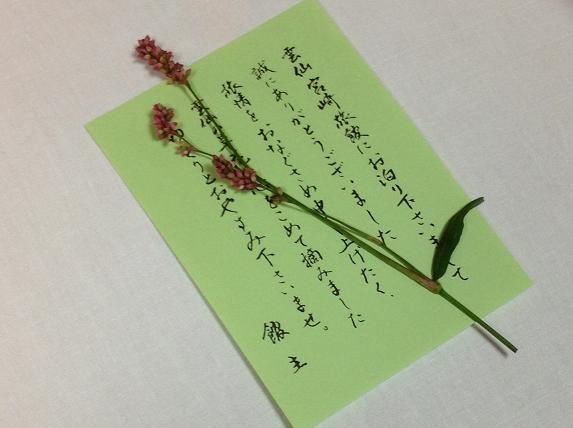 雲仙宮崎旅館にお泊り下さいまして
誠にありがとうございました
旅情をおなぐさめ申上げたく、
雲仙の草花をこめて摘みました
ゆっくりとおやすみ下さいませ。
館主